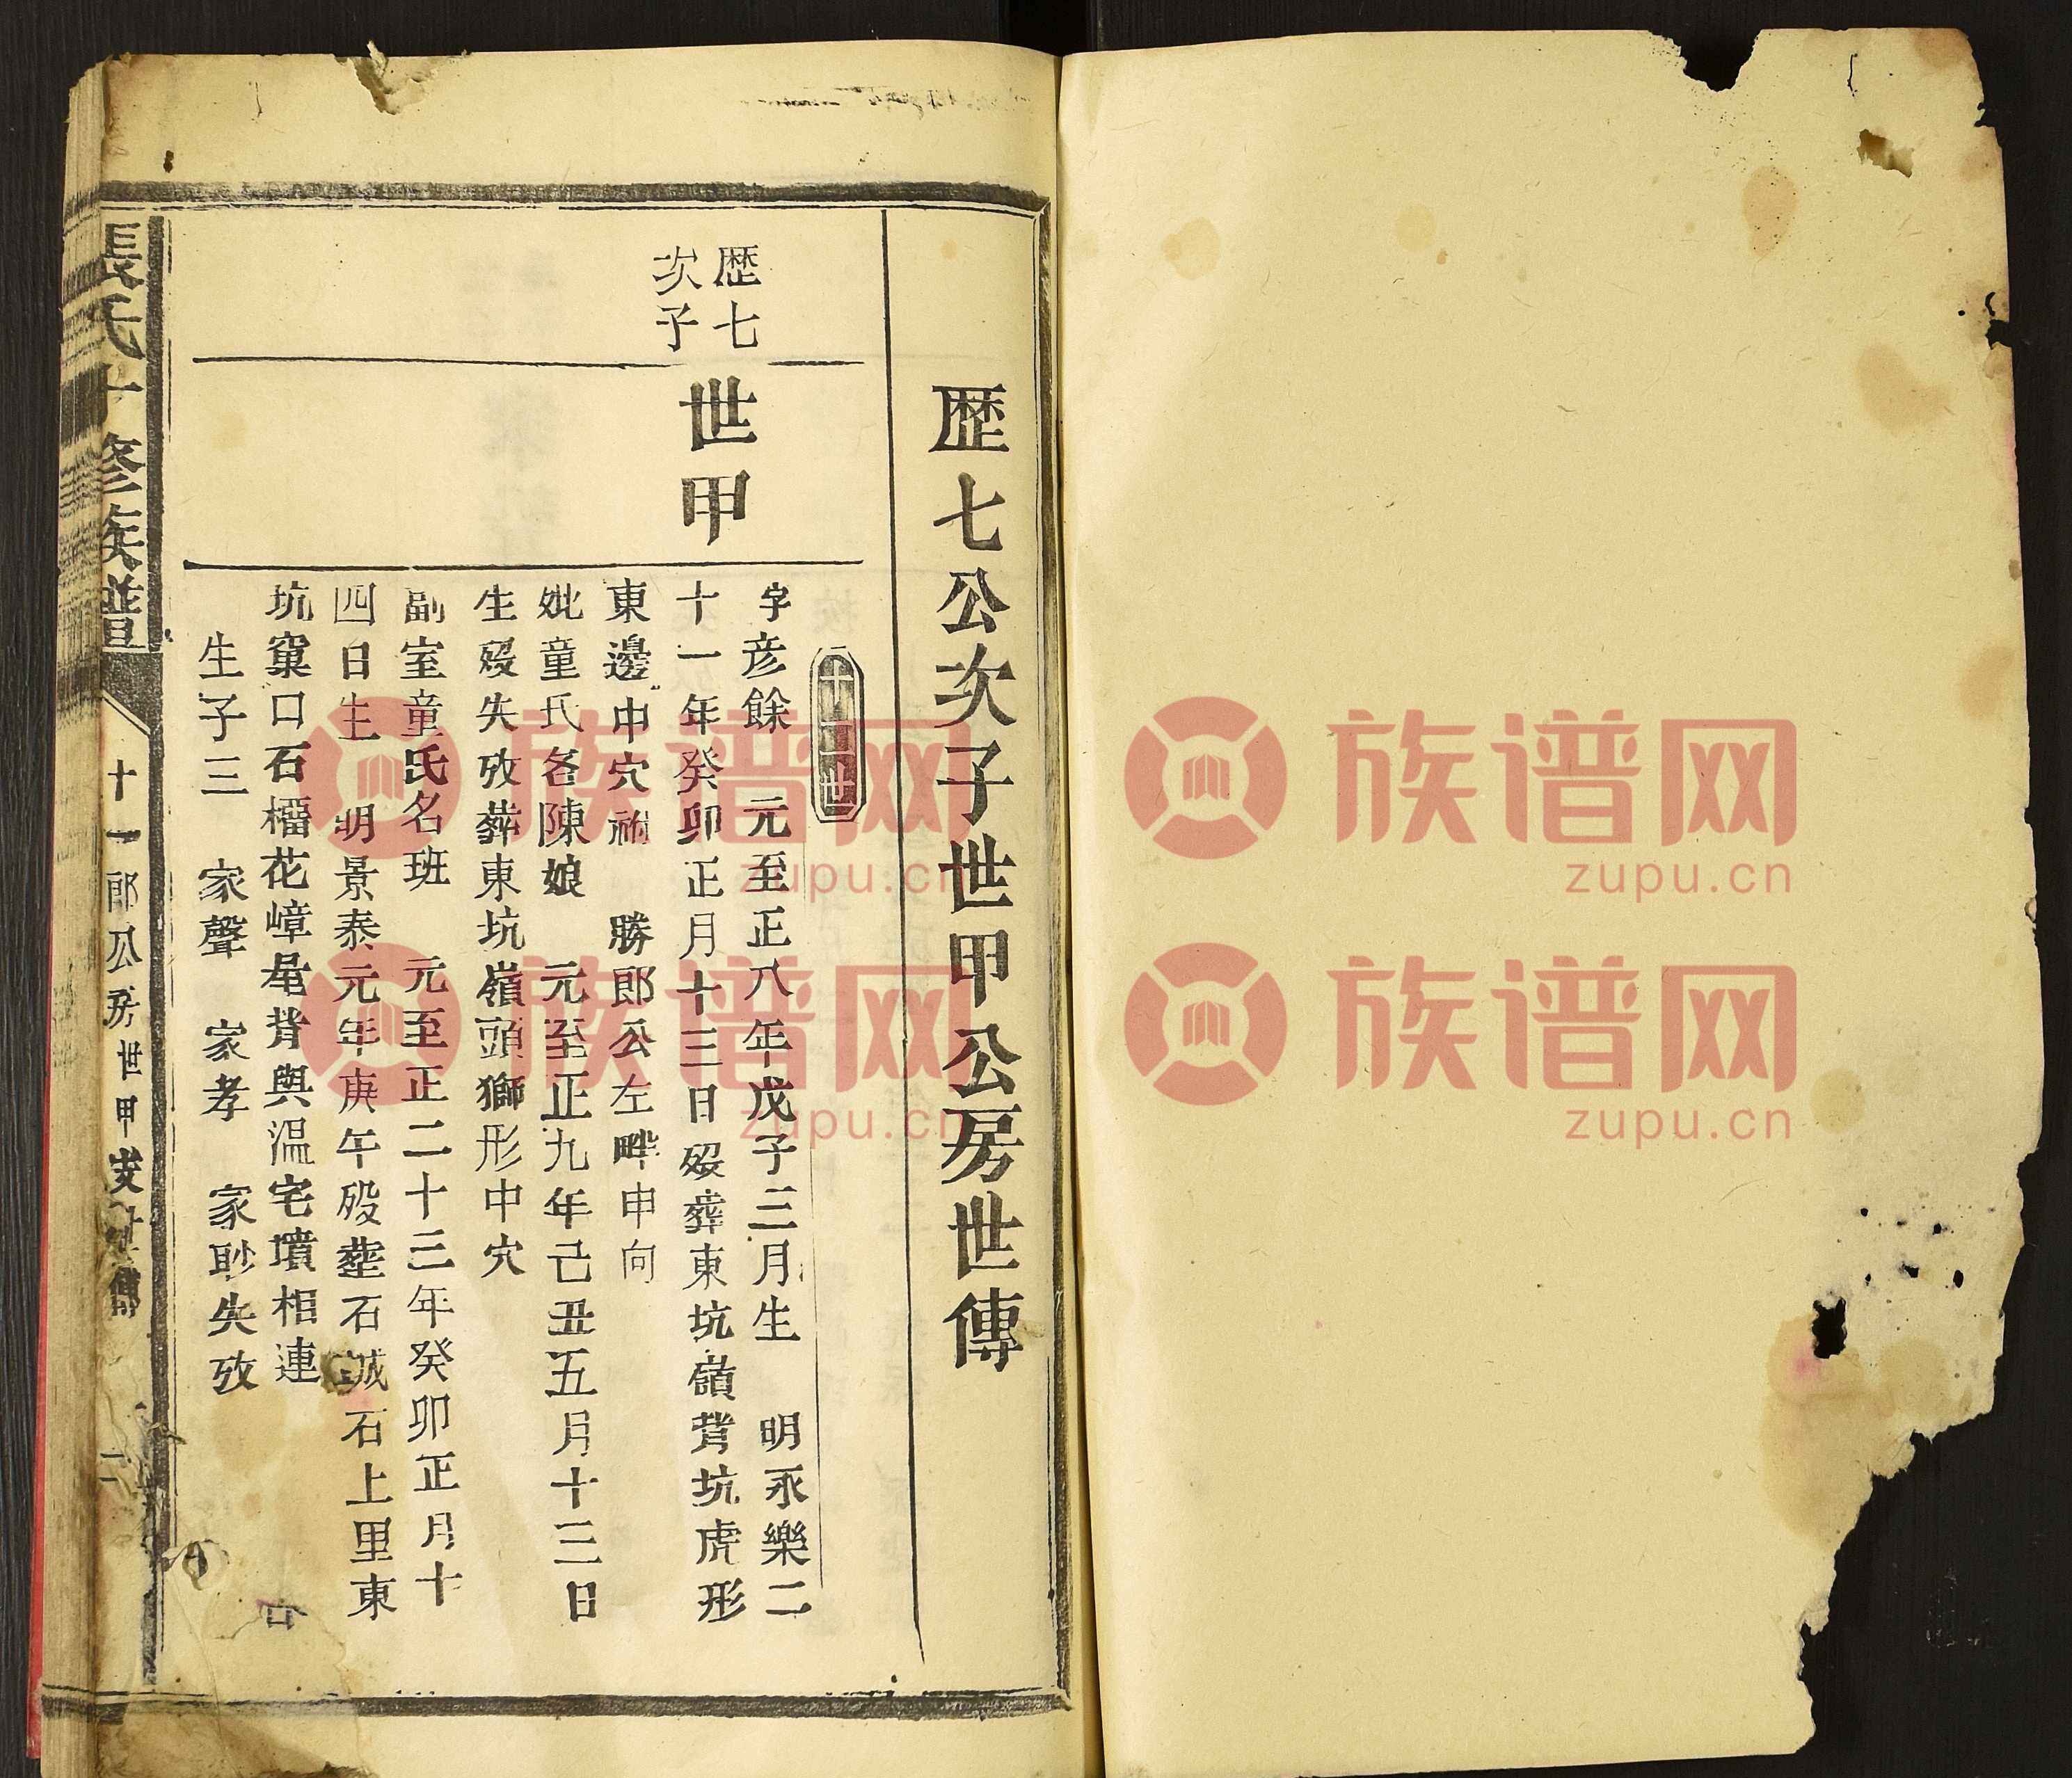 歷七公次子世甲公房世傳
十二世
歷七
次子
世甲
字彦餘　元至正八年戊子三月生　明永樂二
十一年癸卯正月十三日歿葬東坑嶺背坑虎形
東邊中穴祔　勝郎公左畔申向
妣童氏各陳娘　元至正九年己丑五月十三日
生歿失攷葬東坑嶺頭獅形中穴
副室童氏名班　元至正二十三年癸卯正月十
四日生　明景泰元年庚午歿塟石誠石上里東
坑窠口石橊花嶂背與温宅墳相連
生子三　家聲　家孝　家耿失攷
張氏十修族譜
十一郎公房世甲支世傳
二
族谱网
zupu.cn
族谱网
zupu.cn
族谱网
zupu.cn
族谱网
zupu.cn